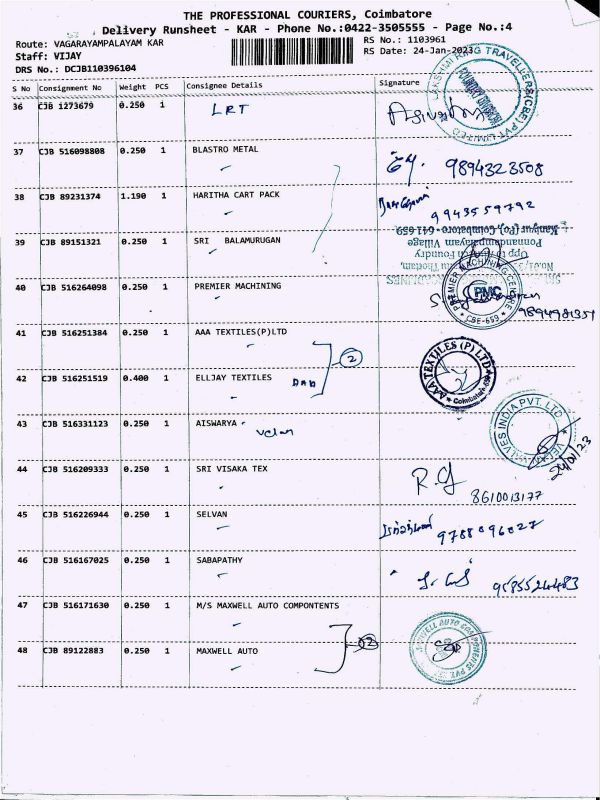 THE PROFESSIONAL COURIERS, Coimbatore
Delivery Runsheet - KAR - Phone No.:0422-3505555 - Page No.:4
Route: VAGARAYAMPALAYAM KAR
RS No.: 1103961
Staff: VIJAY
RS Date: 24-Jan-2023
DRS No.: DCJB110396104
S No Consignment No Weight PCS Consignee Details Signature
36 CJB 1273679 0.250 1 LRT
37 CJB 516098808 0.250 1 BLASTRO METAL 9894323508
38 CJB 89231374 1.190 1 HARITHA CART PACK 9943559792
39 CJB 89151321 0.250 1 SRI BALAMURUGAN
Kaniyur (Po), Coimbatore - 641 659
Ponnandampalayam Village
40 CJB 516264098 0.250 1 PREMIER MACHINING
PREMIER MACHINING CENTRE PMC CBE-659
41 CJB 516251384 0.250 1 AAA TEXTILES(P)LTD
2
AAA TEXTILES (P) LTD
42 CJB 516251519 0.400 1 ELLJAY TEXTILES
43 CJB 516331123 0.250 1 AISWARYA
Velan
VELAN VALVES INDIA PVT. LTD
24/01/23
44 CJB 516209333 0.250 1 SRI VISAKA TEX
8610013177
45 CJB 516226944 0.250 1 SELVAN 9788896027
46 CJB 516167025 0.250 1 SABAPATHY
47 CJB 516171630 0.250 1 M/S MAXWELL AUTO COMPONTENTS
2
48 CJB 89122883 0.250 1 MAXWELL AUTO
MAXWELL AUTO COMPONENTS PVT. LTD